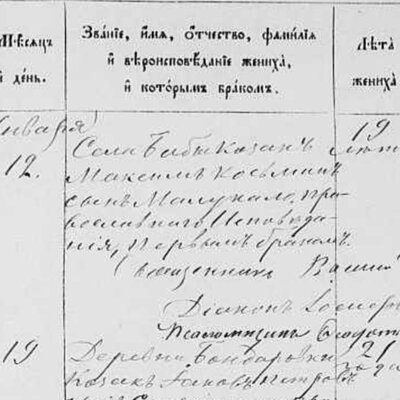 Мѣсяцъ
й день.
Зва́нїе, и҆́мѧ, ѻ҆́тчество, фами́лїѧ
й вѣроисповѣ́данїе жениха̀,
й кото́рымъ бра́комъ.
Лѣ́та
жениха̀
Января
12.
Села Бабы Козакъ
19
лѣтъ
Максимъ Козьминъ
сынъ Малукало, пра-
вославнаго Исповѣда-
нія, Первымъ бракомъ.
Священникъ
Діаконъ Іосифъ
Псаломщикъ
19
Деревни Бондаровки
21
года
Козакъ Іаковъ Петровъ